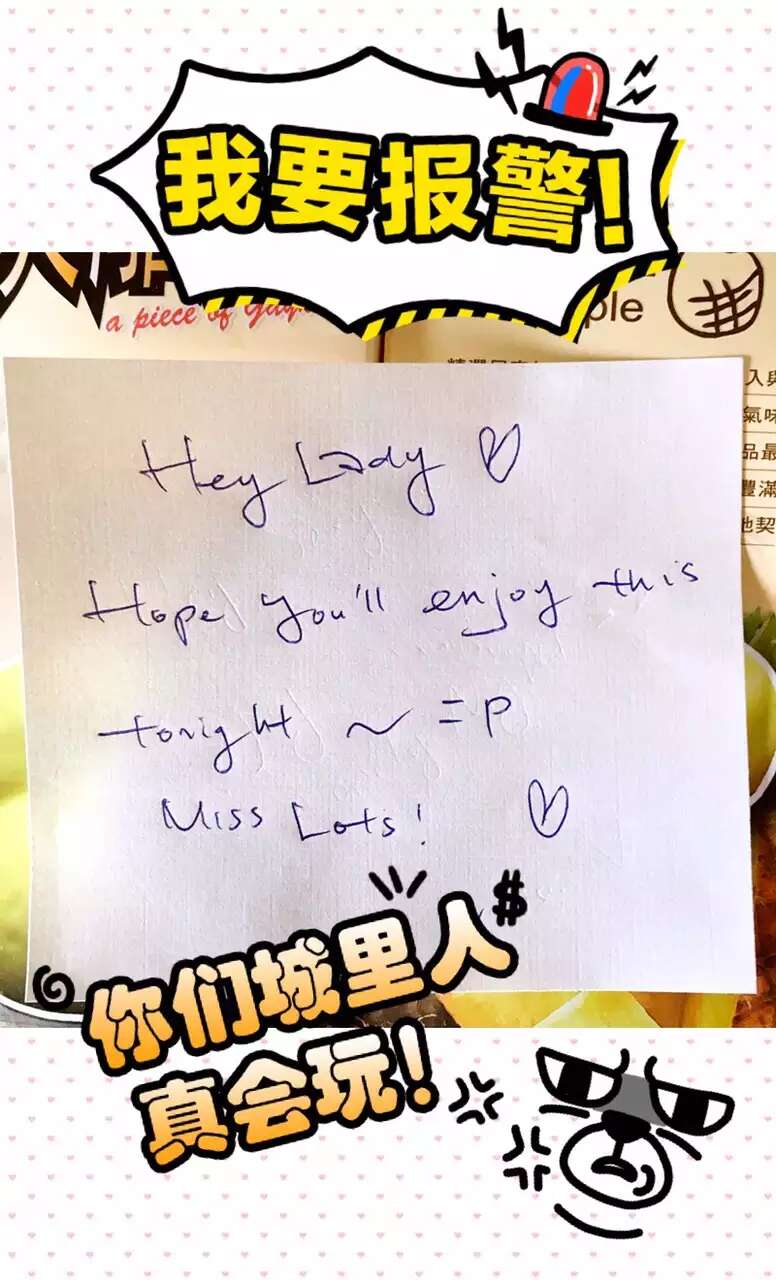 我要报警!
a piece of
ple
入與
氣味
品最
豐滿
地契
Hey Lady
Hope you'll enjoy this
tonight ~ =P
Miss Lots!
$
你们城里人
真会玩!